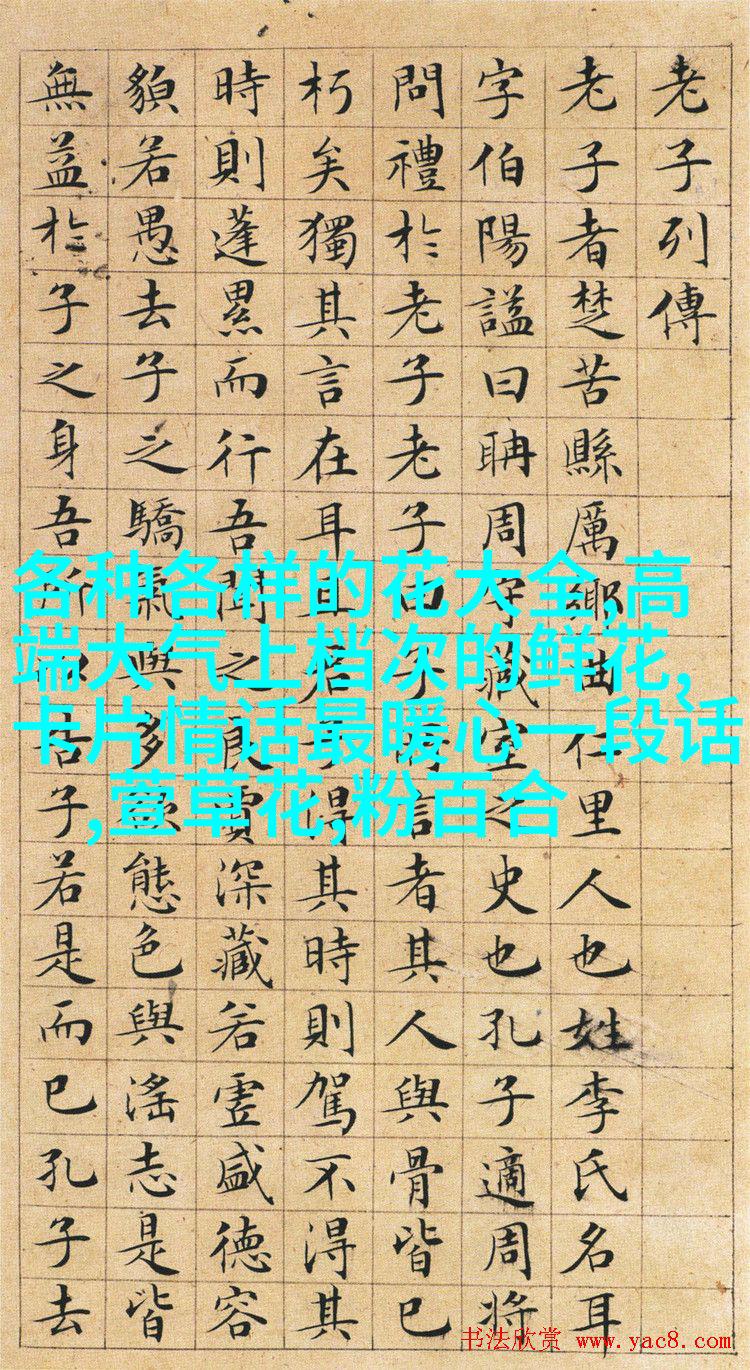 老子列傳
老子者楚苦縣厲鄉曲仁里人也姓李氏名耳
字伯陽謚曰耼周守藏室之史也孔子適周將
問禮於老子老子曰子所言者其人與骨皆已
朽矣獨其言在耳且君子得其時則駕不得其
時則蓬累而行吾聞之良賈深藏若虛盛德容
䫉若愚去子之驕氣與多欲態色與淫志是皆
無益於子之身吾所以告子若是而已孔子去
各种各样的花大全,高
端大气上档次的鲜花,
卡片情话最暖心一段话
,萱草花,粉百合
书法欣赏 www.yac8.com